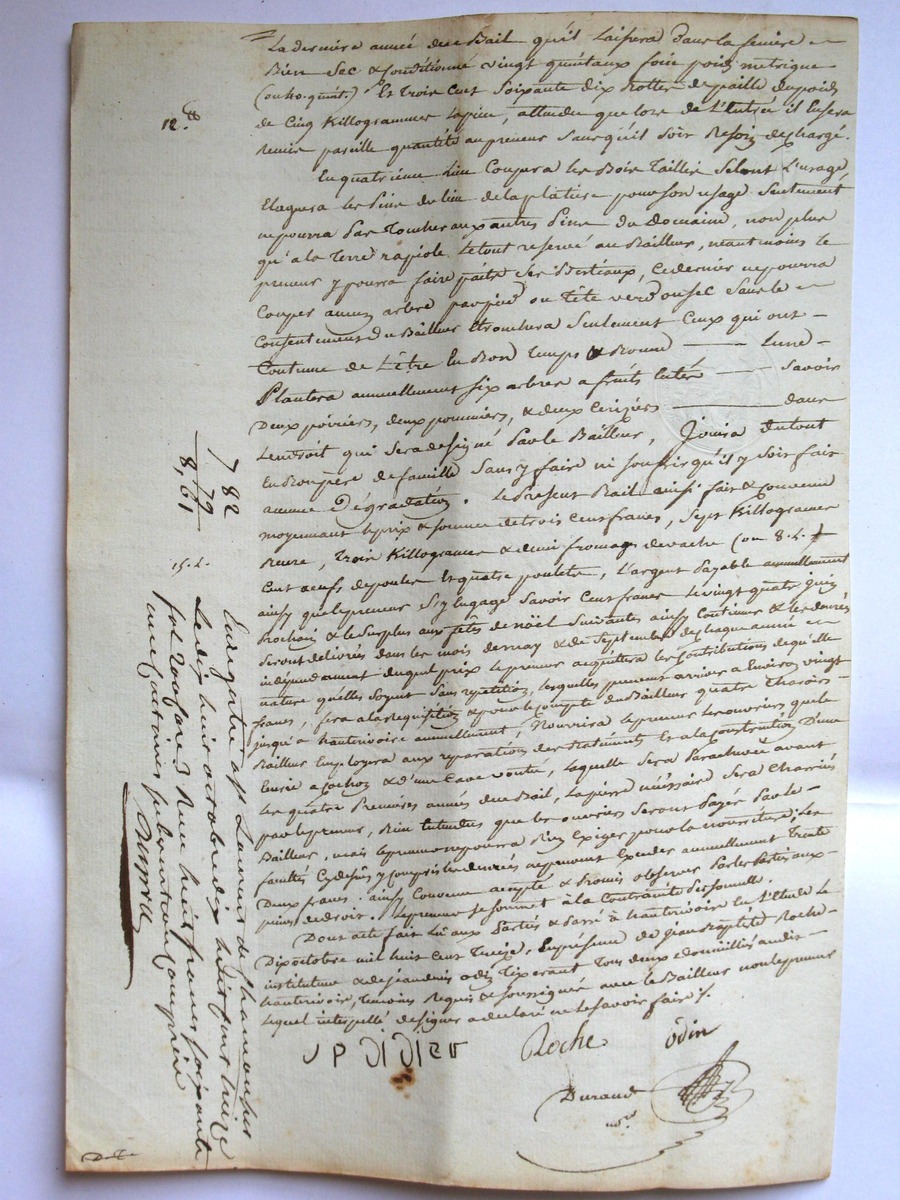 La derniere année du Bail qu'il laissera dans la feniere
Bien Sec & Conditionné vingt quintaux foin poids metrique
(ou 40. quint.) Et Trois Cent Soixante dix Bottes de paille du poids
de Cinq Killogrammes La piece, attendu que lors de L'Entrée il En sera
Remis pareille quantité au preneur Sans qu'il Soit Besoin de
12.
En quatrieme Lieu Coupera les Bois Taillis Selon L'usage,
Elaguera les Pins du lieu de la platiere pour Son usage Seulement
ne pourra pas Toucher aux autres Pins du Domaine, non plus
qu'a la Terre rapiole Le tout reservé au Bailleur, neantmoins le
preneur y pourra faire paitre Ses Bestiaux, Ce dernier ne pourra
Couper aucun arbre par pied ou Tête verd ou sec Sans le
Consentement du Bailleur Etronchera Seulement Ceux qui ont
Coutume de L'être En Bon Temps & Bonne Lune
Plantera annuellement Six arbres a fruits Entés Savoir
Deux poiriers, deux pommiers, & deux Cerizier dans
Lendroit qui Sera designé Par le Bailleur, Jouira du tout
En Bon père de famille Sans y faire ni Souffrir qu'il y Soit fait
aucune Dégradation. Le Present Bail ainsi fait & Convenu
moyennant le prix & Somme de trois Cent francs, Sept Killogrames
Beurre, Trois Killogrames & demi fromage de vache (ou 8. L.
Cent œufs de poules Et quatre poulets, L'argent Payable annuellement
ainsy que le preneur S'y Engage Savoir Cent francs Le vingt quatre juin
Prochain & le Surplus aux fêtes de noël Suivantes ainsy Continuer & les denrées
Seront delivrés dans les mois de may & de Septembre de chaque année
independamment duquel prix Le preneur acquittera les Contributions de quelle
nature quelles Soyent Sans repetition, lesquelles peuvent arriver a Environ vingt
francs, fera a la requisition & pour le Compte du Bailleur quatre Charois
jusqu'a hauterivoire annuellement, Nourrira Le preneur les ouvriers que le
Bailleur Employera aux reparations des Batiments Et a la Construction D'une
Ecurie a Cochon & d'une Cave voutée, laquelle Sera Parachevée avant
Les quatre Premieres années du Bail, La pierre nécessaire Sera Charriée
par le preneur, Bien Entendu que les ouvriers Seront Payés Par le
Bailleur, mais le preneur ne pourra Rien Exiger pour la nourriture; Les
facultés Cy dessus y Compris les denrées annuellement Trente
Deux francs. ainsy Convenu accepté & Promis observer Par les Parties aux
peines de droit. Le preneur Se Soumet à la Contrainte Personnelle.
Dont acte fait Lu aux Parties & Passé à hauterivoire En L'Etude Le
Dix octobre mil huit Cent Treize, En présence de Jean Baptiste Roche
instituteur & de Odin Tixerant Tous deux domiciliés audit
hauterivoire, Temoins Requis & Soussignés avec le Bailleur non le preneur
Lequel interpellé de Signer a declaré ne Le Savoir faire.
Roche
Odin
Durand
no.re
7 82
79
8,61
15. L.
Enregistré à St Laurent de Chamousset
Le dix huit octobre dix huit cent treize
fol. Reçu huit francs soixante
un centimes subvention comprise